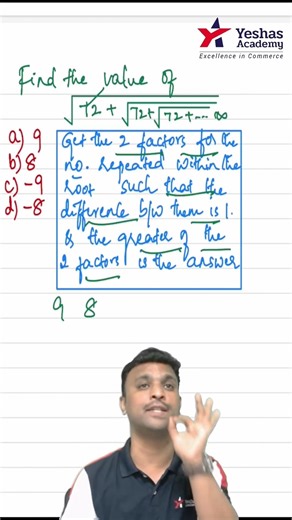 Yeshas
Academy
Excellence in Commerce
Find the value of
√72 + √72 + √72 + --- ∞
a) 9
b) 8
c) -9
d) -8
Get the 2 factors for the
no. repeated within the
root such that the
difference b/w them is 1.
& the greater of the
2 factors is the answer
9 8